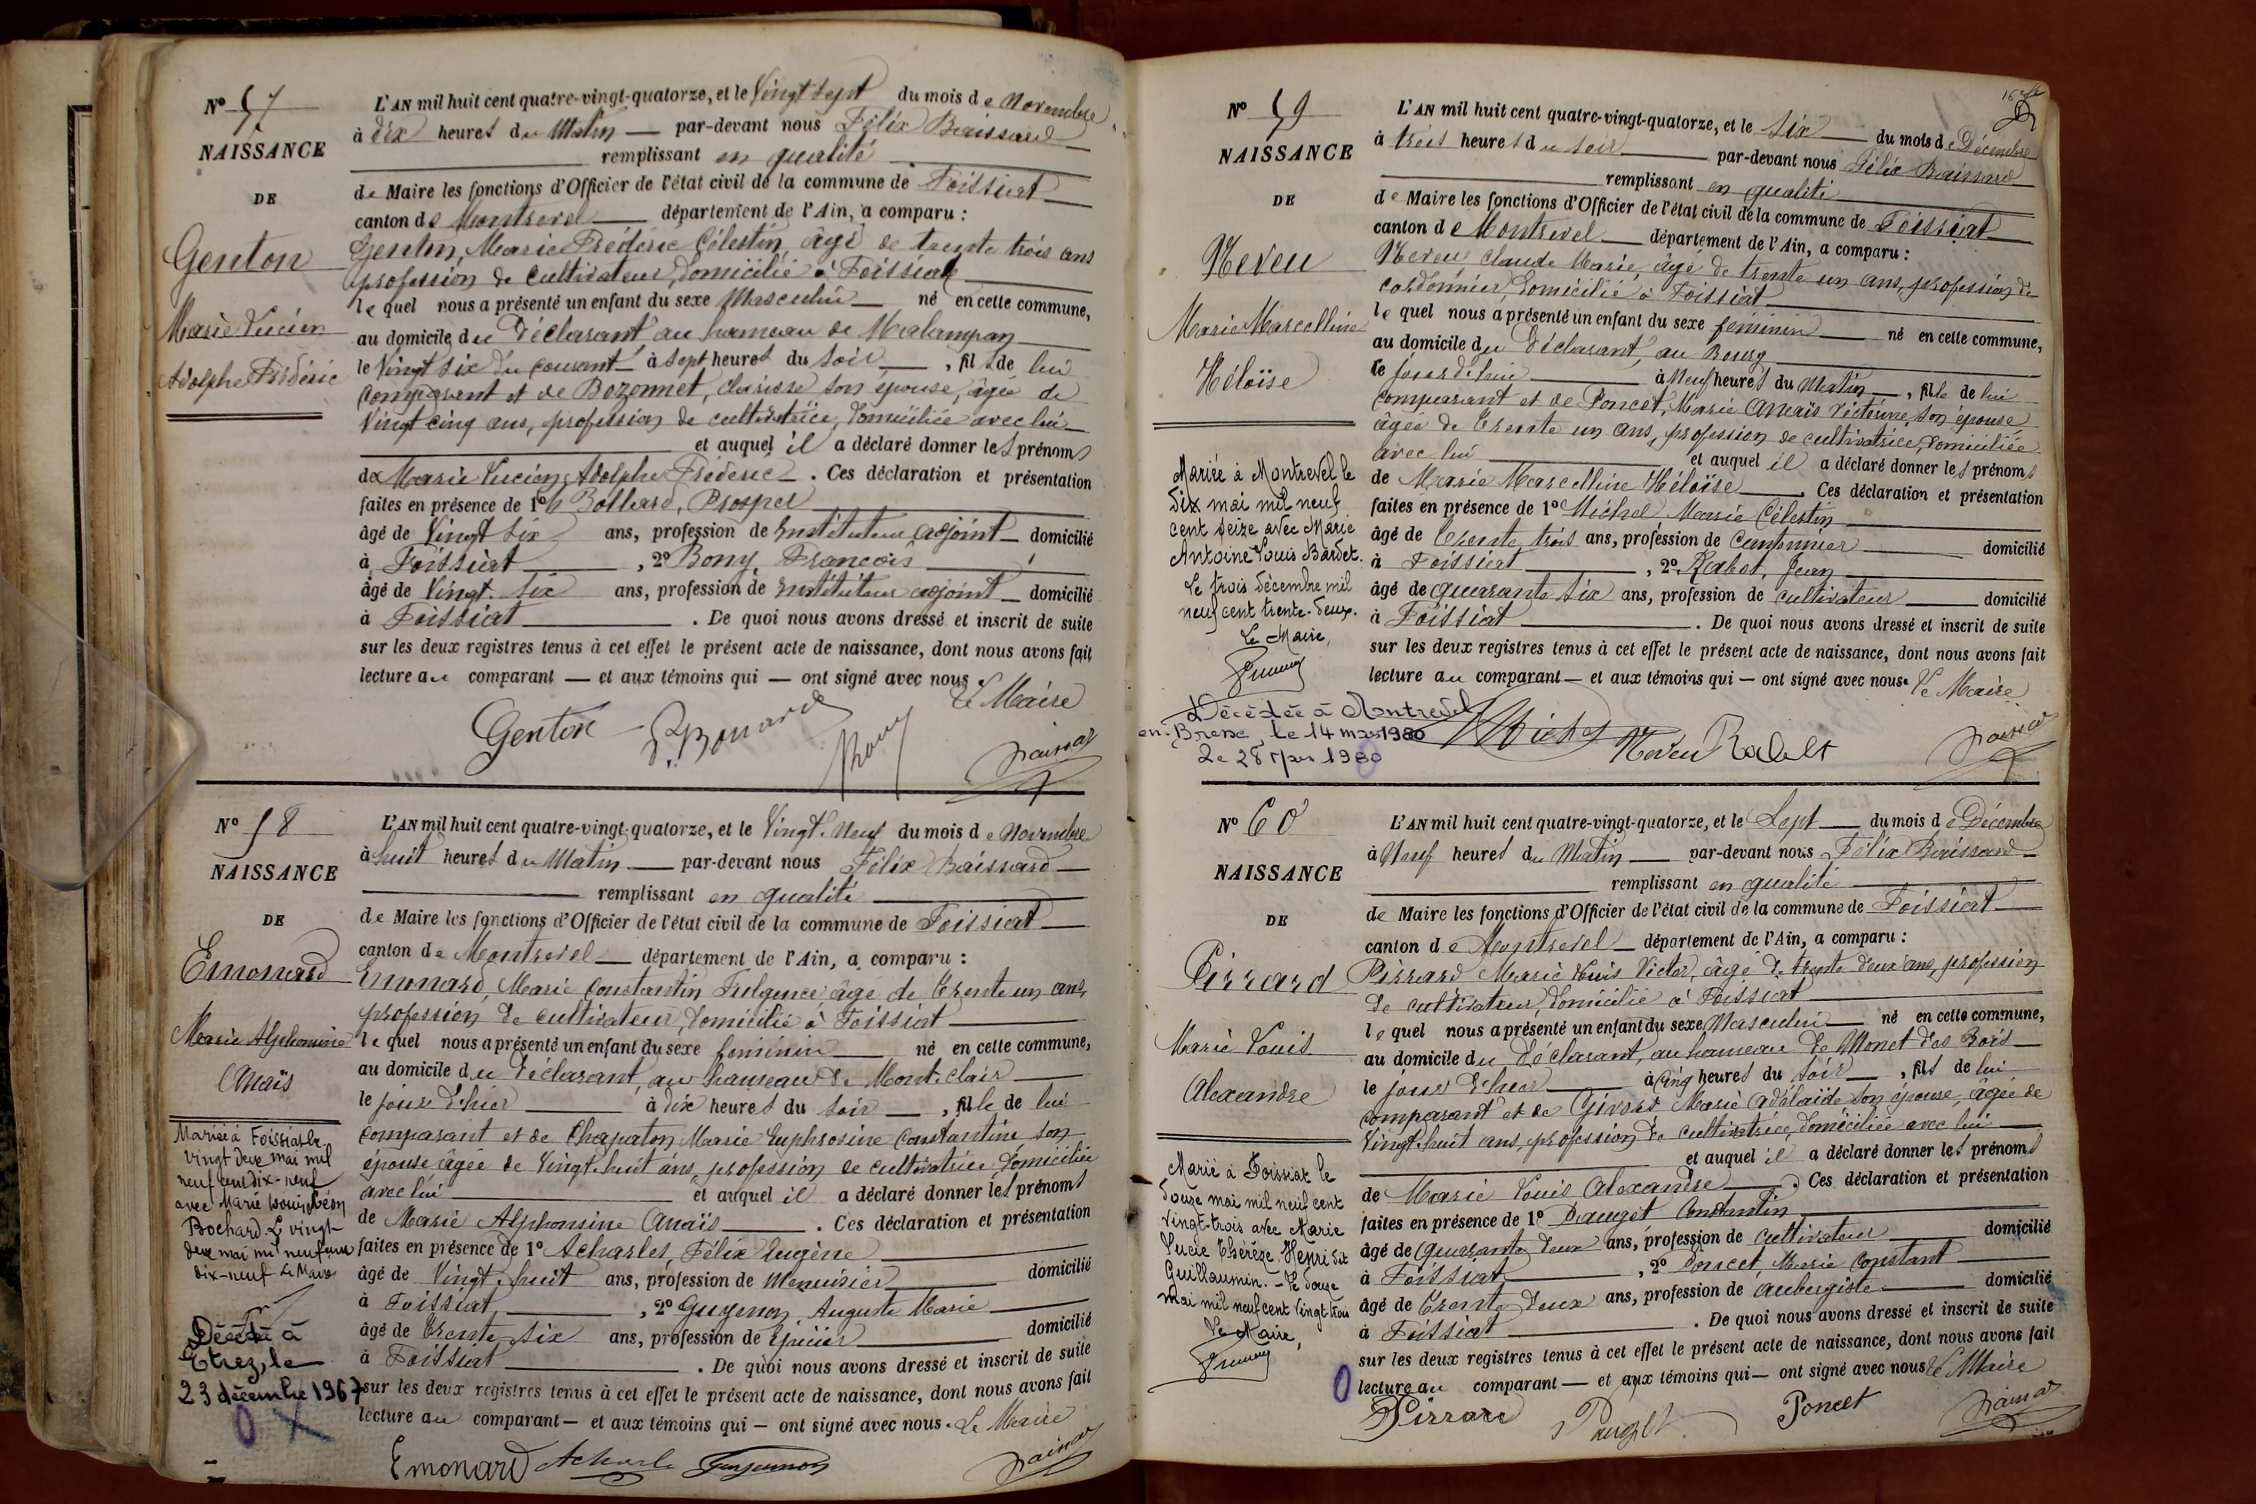 N° 57
NAISSANCE
DE
Genton
Marie Lucien
Adolphe Frédéric
L'AN mil huit cent quatre-vingt-quatorze, et le Vingt sept du mois de Novembre
à dix heures du Matin par-devant nous Félix Baissard
remplissant en qualité
de Maire les fonctions d'Officier de l'état civil de la commune de Foissiat
canton de Montrevel département de l'Ain, a comparu :
Genton, Marie Frédéric Célestin, âgé de trente trois ans
profession de cultivateur, domicilié à Foissiat
lequel nous a présenté un enfant du sexe Masculin né en cette commune,
au domicile du Déclarant au hameau de Malampan
le Vingt six du courant à sept heures du soir, fils de lui
comparant et de Bozonnet, Clarisse son épouse, âgée de
Vingt cinq ans, profession de cultivatrice, domiciliée avec lui
et auquel il a déclaré donner les prénoms
de Marie Lucien Adolphe Frédéric. Ces déclaration et présentation
faites en présence de 1° Prosper
âgé de Vingt six ans, profession de Instituteur adjoint domicilié
à Foissiat, 2° Bony, François
âgé de Vingt six ans, profession de Instituteur adjoint domicilié
à Foissiat. De quoi nous avons dressé et inscrit de suite
sur les deux registres tenus à cet effet le présent acte de naissance, dont nous avons fait
lecture au comparant — et aux témoins qui — ont signé avec nous.
Le Maire
Genton Bony
N° 58
NAISSANCE
DE
Emonard
Marie Alphonsine
Anaïs
Mariée à Foissiat le
vingt deux mai mil
neuf cent dix-neuf
avec Marie Louis Léon
Bochard. Le vingt
deux mai mil neuf cent
dix-neuf Le Maire
Décédée à
Etrez, le
23 décembre 1967
L'AN mil huit cent quatre-vingt-quatorze, et le Vingt-Neuf du mois de Novembre
à huit heures du Matin par-devant nous Félix Baissard
remplissant en qualité
de Maire les fonctions d'Officier de l'état civil de la commune de Foissiat
canton de Montrevel département de l'Ain, a comparu :
Emonard, Marie Constantin Fulgence, âgé de trente un ans,
profession de cultivateur, domicilié à Foissiat
lequel nous a présenté un enfant du sexe féminin né en cette commune,
au domicile du Déclarant, au hameau de Mont-clair
le jour d'hier à dix heures du soir, fille de lui
comparant et de Chapaton Marie Euphrosine Constantine son
épouse âgée de Vingt-huit ans, profession de cultivatrice domiciliée
avec lui et auquel il a déclaré donner les prénoms
de Marie Alphonsine Anaïs. Ces déclaration et présentation
faites en présence de 1° Acharles, Félix Eugène
âgé de Vingt-huit ans, profession de Menuisier domicilié
à Foissiat, 2° Guyenon, Auguste Marie
âgé de trente-six ans, profession de Epicier domicilié
à Foissiat. De quoi nous avons dressé et inscrit de suite
sur les deux registres tenus à cet effet le présent acte de naissance, dont nous avons fait
lecture au comparant — et aux témoins qui — ont signé avec nous. Le Maire
Emonard
N° 59
NAISSANCE
DE
Neveu
Marie Marcelline
Héloïse
Mariée à Montrevel le
dix mai mil neuf
cent seize avec Marie
Antoine Louis Bardet.
Le trois décembre mil
neuf cent trente-deux.
Le Maire,
Décédée à Montrevel
en-Bresse, le 14 mars 1980
Le 28 Mars 1980
L'AN mil huit cent quatre-vingt-quatorze, et le Six du mois de Décembre
à trois heures du soir par-devant nous Félix Baissard
remplissant en qualité
de Maire les fonctions d'Officier de l'état civil de la commune de Foissiat
canton de Montrevel département de l'Ain, a comparu :
Neveu Claude Marie, âgé de trente un ans, profession de
cordonnier, domicilié à Foissiat
lequel nous a présenté un enfant du sexe féminin né en cette commune,
au domicile du Déclarant, au Bourg
le jour d'hui à Neuf heures du Matin, fille de lui
comparant et de Poncet, Marie Anaïs Victorine, son épouse
âgée de trente un ans, profession de cultivatrice, domiciliée
avec lui et auquel il a déclaré donner les prénoms
de Marie Marcelline Héloïse. Ces déclaration et présentation
faites en présence de 1° Michel Marie Célestin
âgé de trente trois ans, profession de Cantonnier domicilié
à Foissiat, 2° Rabot, Jean
âgé de quarante six ans, profession de cultivateur domicilié
à Foissiat. De quoi nous avons dressé et inscrit de suite
sur les deux registres tenus à cet effet le présent acte de naissance, dont nous avons fait
lecture au comparant — et aux témoins qui — ont signé avec nous. Le Maire
Michel Neveu
N° 60
NAISSANCE
DE
Pirrard
Marie Louis
Alexandre
Marié à Foissiat le
douze mai mil neuf cent
vingt-trois avec Marie
Lucie Thérèse Henri dit
Guillaumin. - Le douze
mai mil neuf cent vingt trois
Le Maire,
L'AN mil huit cent quatre-vingt-quatorze, et le Sept du mois de Décembre
à Neuf heures du Matin par-devant nous Félix Baissard
remplissant en qualité
de Maire les fonctions d'Officier de l'état civil de la commune de Foissiat
canton de Montrevel département de l'Ain, a comparu :
Pirrard Marie Louis Victor, âgé de trente deux ans, profession
de cultivateur, domicilié à Foissiat
lequel nous a présenté un enfant du sexe Masculin né en cette commune,
au domicile du Déclarant, au hameau de Monet des Bois
le jour d'hier à Cinq heures du soir, fils de lui
comparant et de Givord Marie Adélaïde son épouse, âgée de
Vingt-huit ans, profession de cultivatrice, domiciliée avec lui
et auquel il a déclaré donner les prénoms
de Marie Louis Alexandre. Ces déclaration et présentation
faites en présence de 1° Pauget Constantin
âgé de quarante deux ans, profession de cultivateur domicilié
à Foissiat, 2° Poncet, Marie Constant
âgé de trente deux ans, profession de aubergiste domicilié
à Foissiat. De quoi nous avons dressé et inscrit de suite
sur les deux registres tenus à cet effet le présent acte de naissance, dont nous avons fait
lecture au comparant — et aux témoins qui — ont signé avec nous Le Maire
Pirrard Pauget Poncet